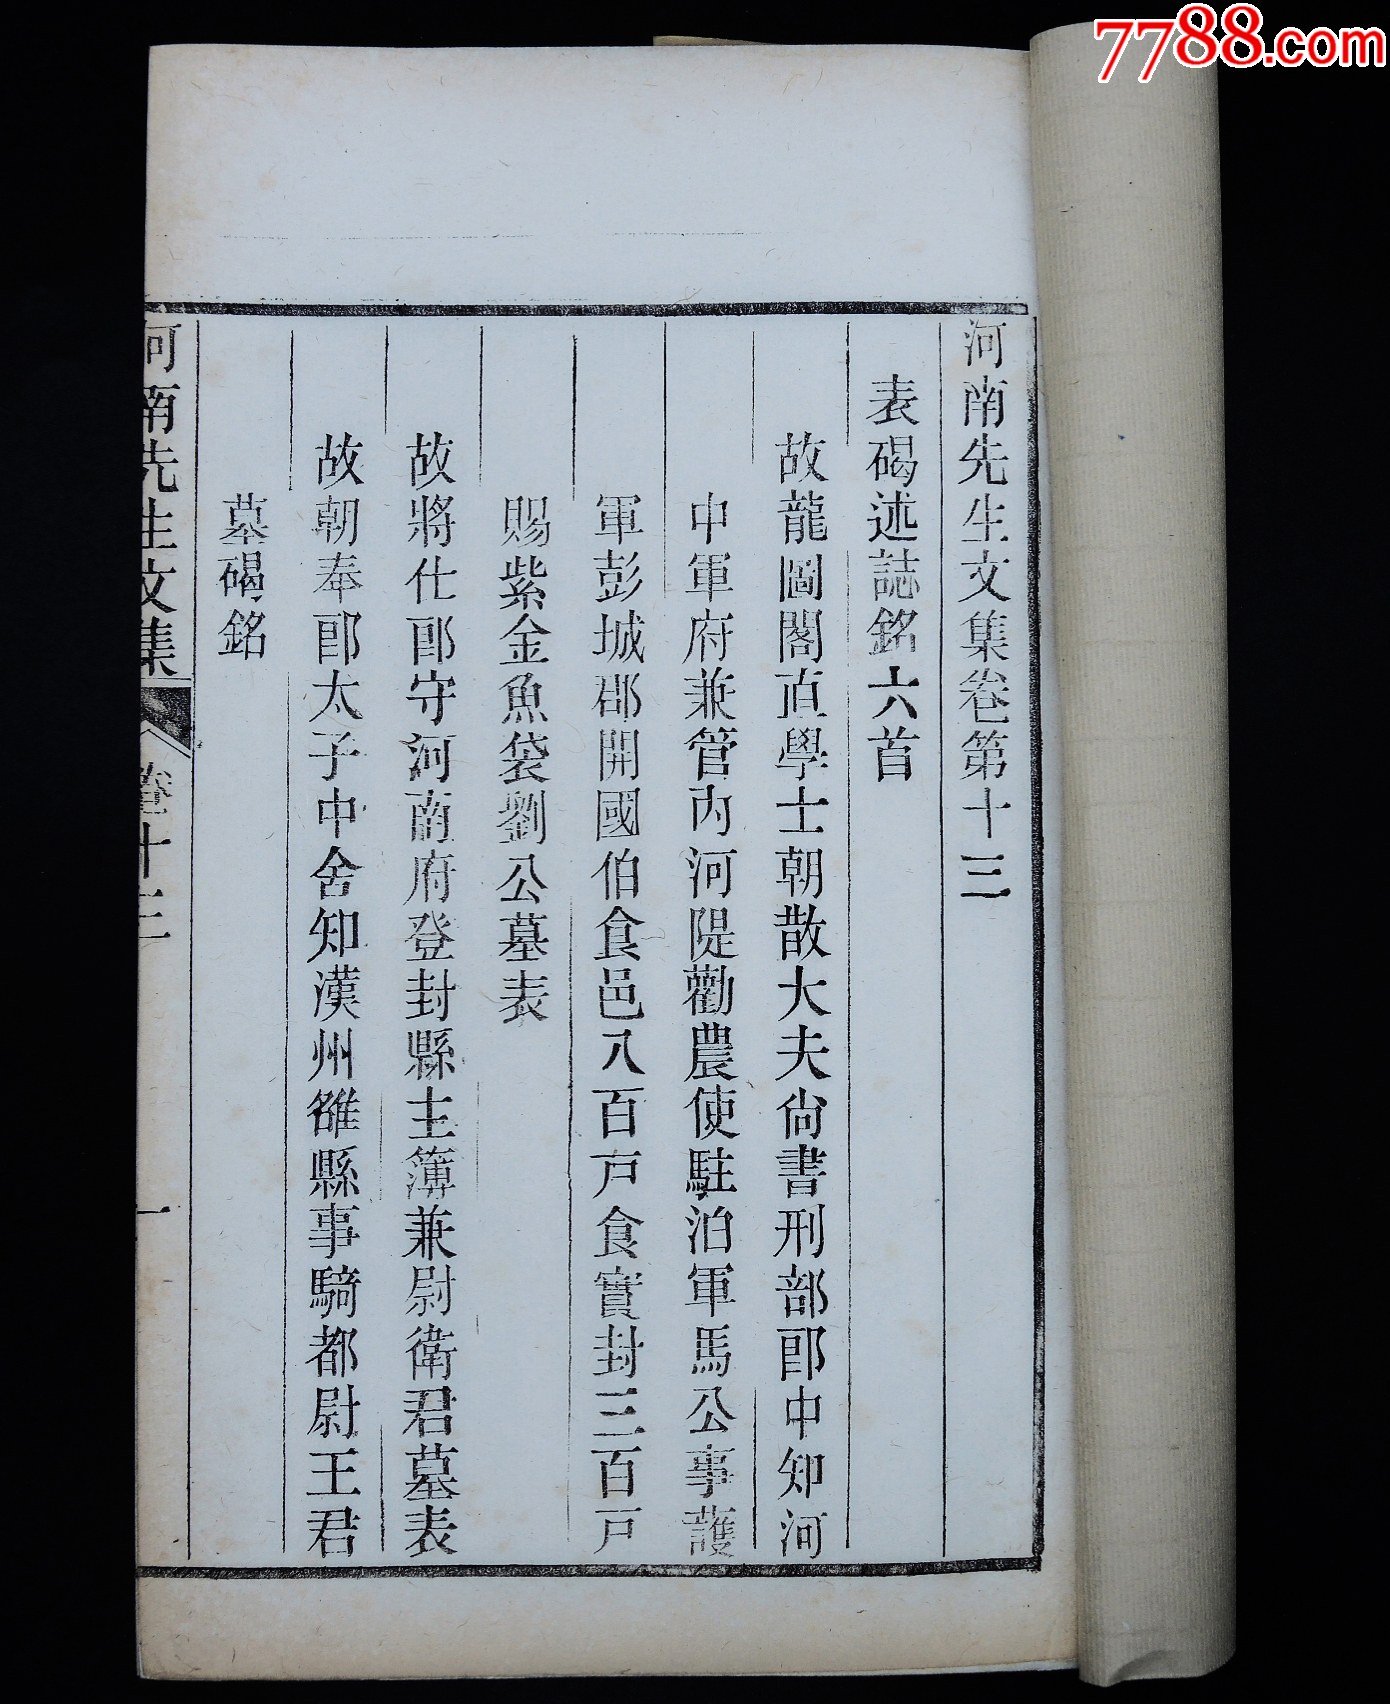 7788.com
河南先生文集卷第十三
表碣述誌銘六首
故龍圖閣直學士朝散大夫尚書刑部郎中知河
中軍府兼管內河隄勸農使駐泊軍馬公事護
軍彭城郡開國伯食邑八百戸食實封三百戸
賜紫金魚袋劉公墓表
故將仕郎守河南府登封縣主簿兼尉衛君墓表
故朝奉郎太子中舍知漢州雒縣事騎都尉王君
墓碣銘
河南先生文集 卷十三 一